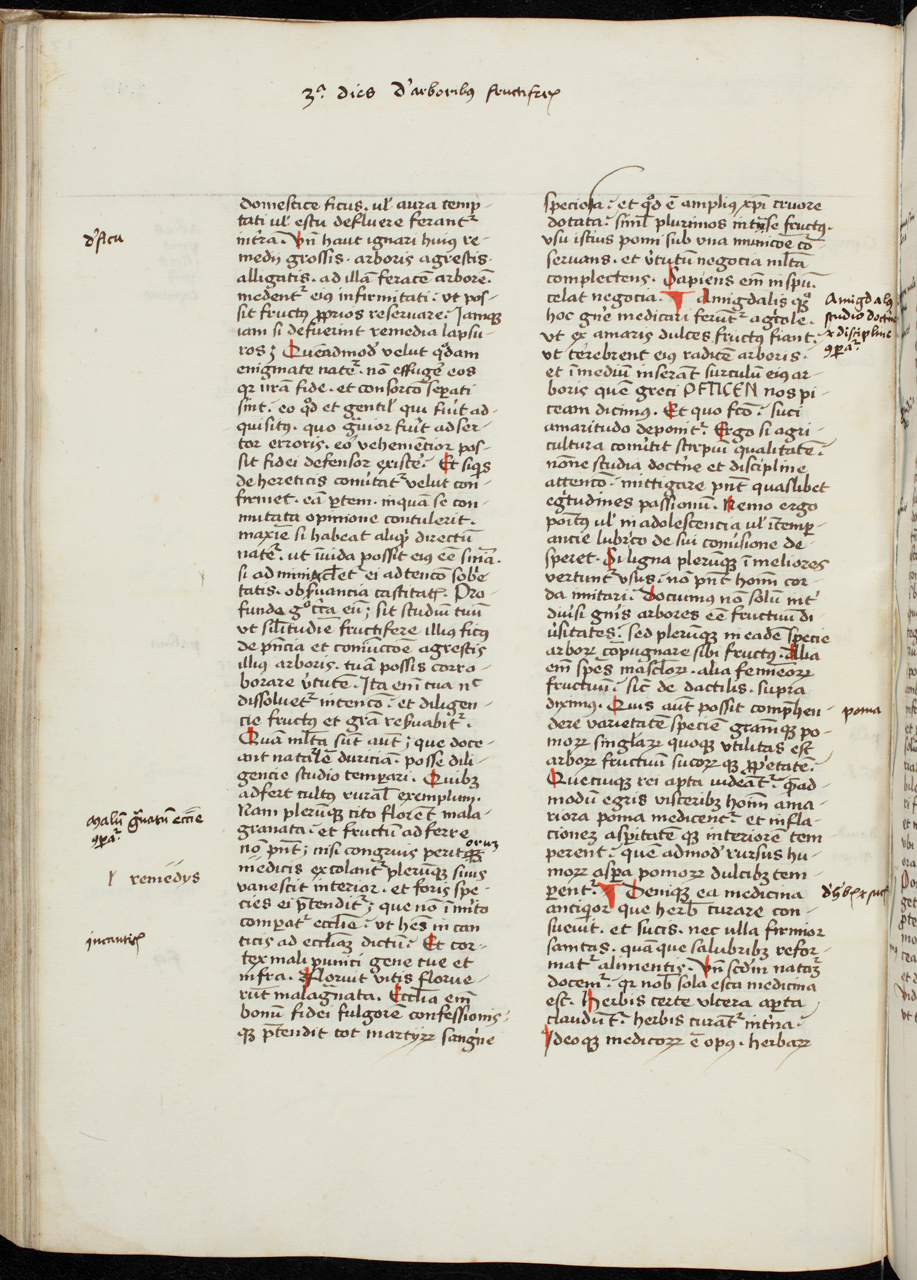 3ª dies d' arboribꝰ fructiferis
d' ficu
domestice ficus. vl' aura temp-
tati vl' estu defluere ferant᷑
intra. Vn̄ haut ignari huiꝰ re-
medij grossis. arboris agrestis.
alligatis. ad illā feracē arborē.
medent᷑ eiꝰ infirmitati. ut pos-
sit fructꝰ ꝓprios reservare. Jamqꝫ
iam si defuerint remedia lapsu-
ros; Quēadmoď velut q°dam
enigmate nat᷑e. nō effug'e eos
qr ūram fide. et consorcō sepati
sint. eo q°d et gentil' qui fuīt ad-
quisitꝰ. quo gͣuior fuīt adser-
tor erroris. eo vehemētior pos-
sit fidei defensor existē. Et siqͥs
de hereticis cōmutat᷑ velut con-
firmet. eā ꝑtem. inquā se con-
mutata opinione contulerit.
maxīe si habeat aliqͥd directū
nat᷑e. ut iuuida possit eiꝰ eē sn̄ia.
si adminiclet᷑ ei adtencō sobͥe-
tatis. obẜuancia castitatꝭ. Pro-
funda gͦ cͥca eū; sit studiū tuū
ut sil'itudīe fructifere illiꝰ ficꝰ
de pn̄cia et cōmiuccōe agrestis
illiꝰ arboris. tuā possis corro-
borare v̓tutē. Ita em̄ tua nᶜ
dissoluet᷑ intencō. et diligen-
cie fructꝰ et gr̄a reẜuabit᷑.
Quā ml̄ta sūt aut̄; que doce-
ant natal'ē duriciā. posse dili-
gencie studio temꝑari. Quibꝫ
adfert cultꝰ rural' exemplum.
Nam plerūqꝫ cito florēt mala-
granata. et fructū adferre
nō pn̄t; nisi congruis peritorum
medicis excolant᷑ plerūqꝫ suus
vanescit interior. et foris spe-
cies ei p̄tendit᷑; que nō īmͥto
comꝑat᷑ eccl'ie. ut hēs in can
ticis ad eccl'iaꝫ dictū. Et cor-
tex mali punici gene tue et
infra. Floruit vitis florue-
rūt malagͣnata. Eccl'ia em̄
bonū fidei fulgorē confessionis.
qꝫ p̄tendit tot martyrꝝ sangͥne
malū gͣnatū eccl'ie
ꝯꝑat᷑
remedijs
in canticꝭ
speciosa. et q°d ē ampliꝰ xp̄i cruore
dotata. sim̄l plurimos int᷑se fructꝰ.
usu istius pomi sub una municōe cō-
seruans. et v̓tutū negocia ml̄ta
complectens. Sapiens em̄ inspū.
celat negocia. Amigdalis qqꝫ
hoc gn̄e medicari ferūt᷑ agͥcole.
ut ex amaris dulces fructꝰ fiant.
ut terebrent eiꝰ radicē arboris.
et ī mediū inserāt surculū eiꝰ ar-
boris quē greci OFTICEN nos pi-
ceam dicimꝰ. Et quo fcō. suci
amaritudo deponit᷑. Ergo si agri-
cultura cōmūtit stirpiū qualitatē.
nōne studia doctͥne et discipline
attencō. mittigare pn̄t quaslibet
egͥtudines passionū. Nemo ergo
poitꝰ vl' in adolescencia vl' ītemp-
ancie lubͥco de sui conūsione de-
speret. Si ligna plerūqꝫ ī meliores
vertunt᷑ usus. nō pn̄t hoīm cor-
da īmitari. Docuimꝰ nō solū int᷑
diuīsi gn̄is arbores eē fructuū di
ūsitates. sed plerūqꝫ in eadē specie
arborꝝ copugnare sibi fructꝰ. Alia
em̄ spēs mascl'orꝝ. alia femīeorꝝ
fructuū. sic̄ de dactilis. supra
diximꝰ. Quis aut̄ possit comp̄hen-
dere varietatē speciē gͣamqꝫ po-
morꝝ singl'arꝝ quoqꝫ utilitas est
arborꝝ fructuū sucorꝝqꝫ ꝓpͥetatē.
Quecūqꝫ rei apta uideāt᷑. q̄mad
modū egris visceribꝫ hoīm ama-
riora poma medicent᷑. et infla-
cionez asꝑitatēqꝫ interiorē tem
perent. quē admoď rursus hu-
morꝝ asꝑa pomorꝝ dulcibꝫ tem-
ꝑent᷑. Deniqꝫ ea medicina
antiqͥor que herb' curare con-
sueuit. et sucis. nec ulla firmior
sanitas. quā que salubribꝫ refor-
mat᷑ alimentis. Vn̄ scd̄m naturā
docem᷑. qr nob' sola esca medicina
est. Herbis certe ulcera aꝑta
claudūt᷑. herbis curant᷑ int᷑na.
Ideoqꝫ medicorꝝ ē opꝰ. herbarꝝ
Amigdalꝰ
studio doctͥne
et discipline
ꝯꝑat᷑
poma